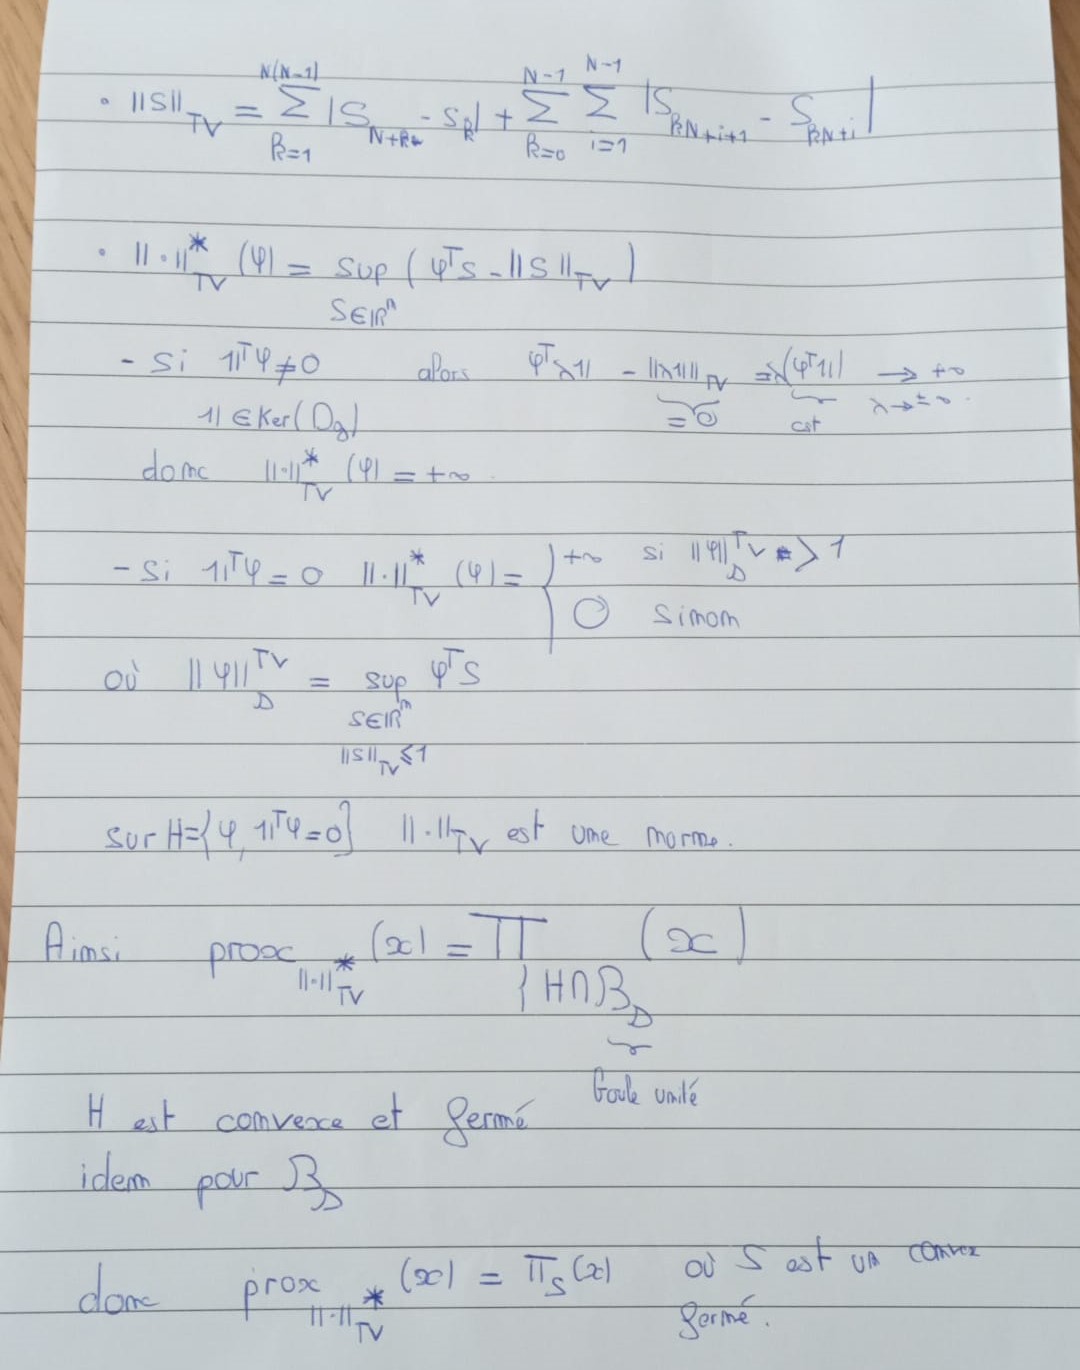 • ||S||_TV = Σ_{k=1}^{N(N-1)} |S_{N+k} - S_k| + Σ_{k=0}^{N-1} Σ_{i=1}^{N-1} |S_{kN+i+1} - S_{kN+i}|
• ||·||*_TV (φ) = sup_{S∈ℝⁿ} ( φᵀS - ||S||_TV )
- Si 𝟙ᵀφ ≠ 0 alors φᵀλ𝟙 - ||λ𝟙||_TV = λ(φᵀ𝟙) → +∞
= 0 cst λ→±∞
𝟙 ∈ Ker(D_g)
donc ||·||*_TV (φ) = +∞.
- Si 𝟙ᵀφ = 0 ||·||*_TV (φ) = { +∞ si ||φ||_D^TV > 1
0 sinon
où ||φ||_D^TV = sup_{S∈ℝⁿ, ||S||_TV ≤ 1} φᵀS
sur H={φ, 𝟙ᵀφ=0} ||·||_TV est une norme.
Ainsi prox_{||·||*_TV} (x) = Π_{{H∩B_D} (x)
boule unité
H est convexe et fermé
idem pour B_D
donc prox_{||·||*_TV} (x) = Π_S(x) où S est un convex
fermé.